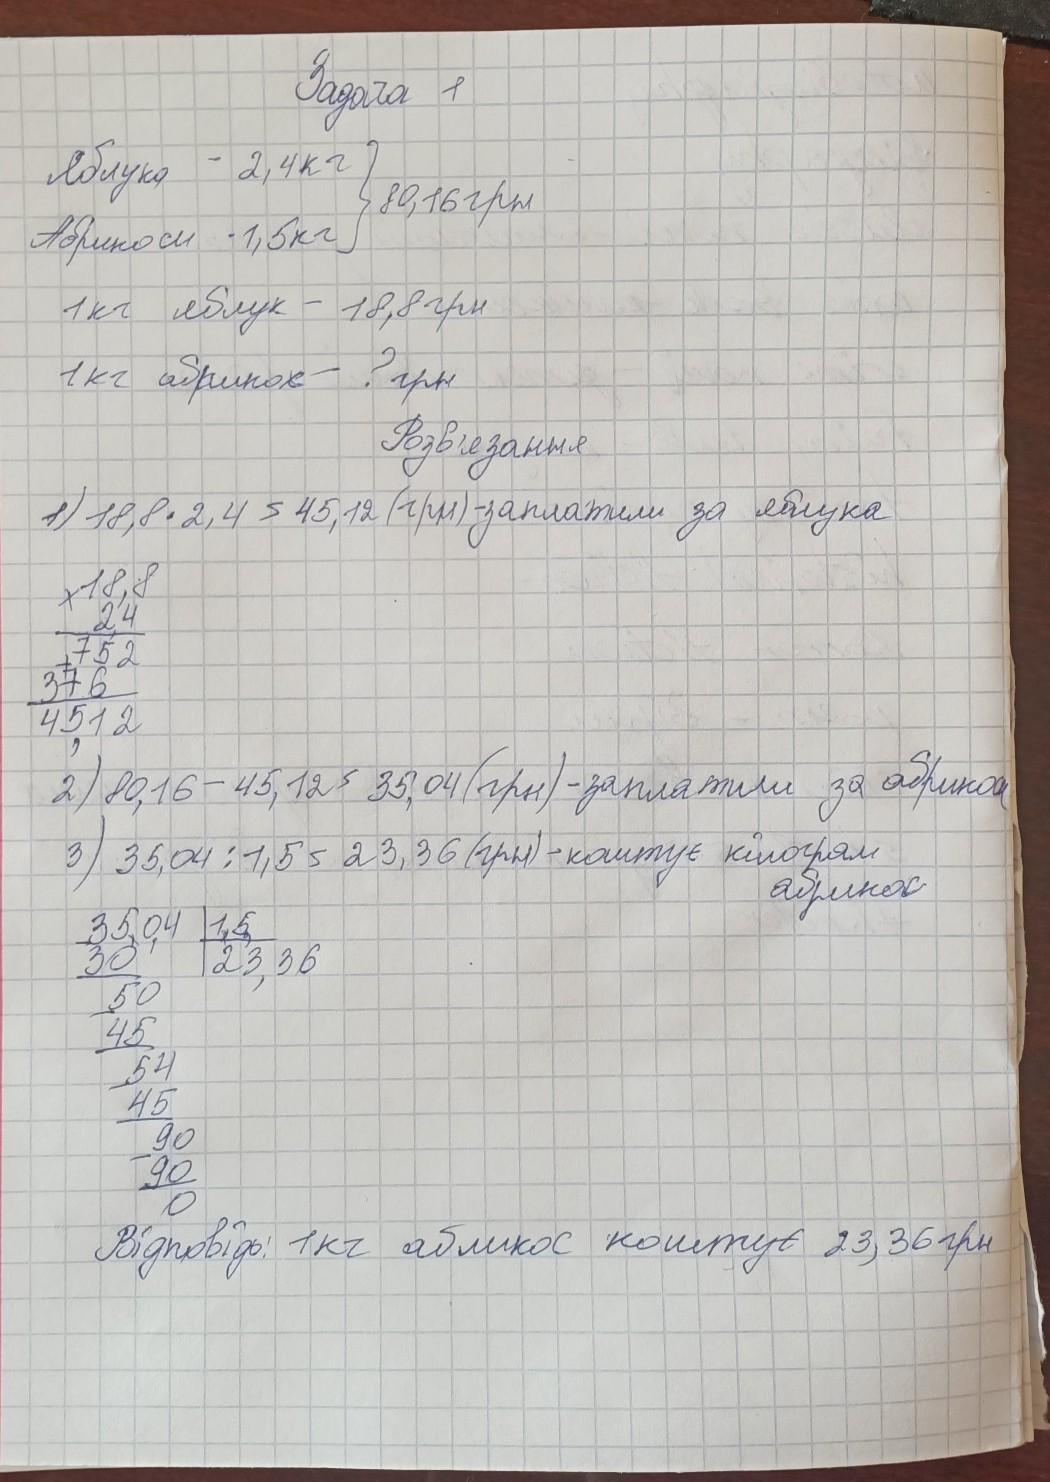 Задача 1
Яблука - 2,4кг
80,16грн
Абрикоси - 1,5кг
1кг яблук - 18,8грн
1кг абрикос - ? грн
Розв'язання
1) 18,8 · 2,4 = 45,12 (грн)-заплатили за яблука
×18,8
2,4
+752
376
45,12
2) 80,16 - 45,12 = 35,04 (грн)-заплатили за абрикоси
3) 35,04 : 1,5 = 23,36 (грн)-коштує кілограм
абрикос
35,0,4 | 1,5,
30 23,36
50
45
54
45
90
90
0
Відповідь: 1кг абликос коштує 23,36грн